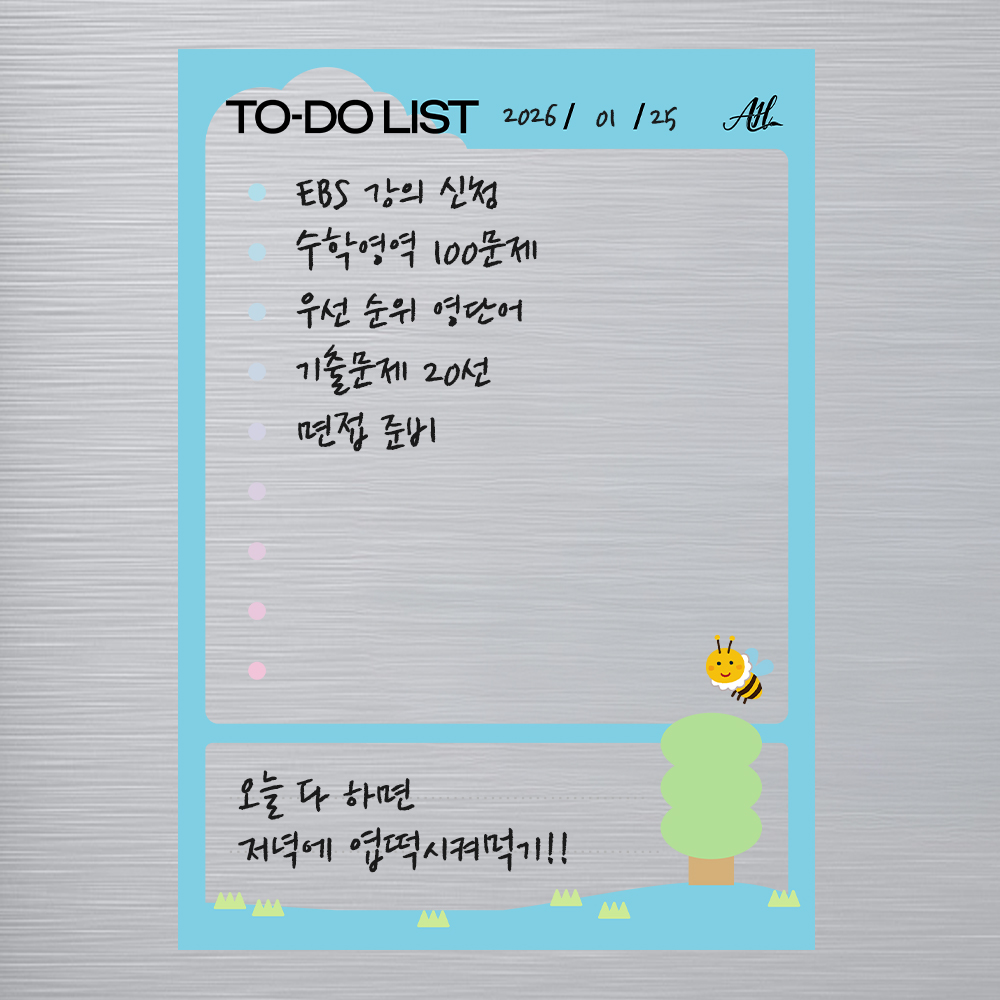 TO-DO LIST 2026 / 01 / 25 AH
EBS 강의 신청
수학영역 100문제
우선 순위 영단어
기출문제 20선
면접 준비
오늘 다 하면
저녁에 엽떡시켜먹기!!